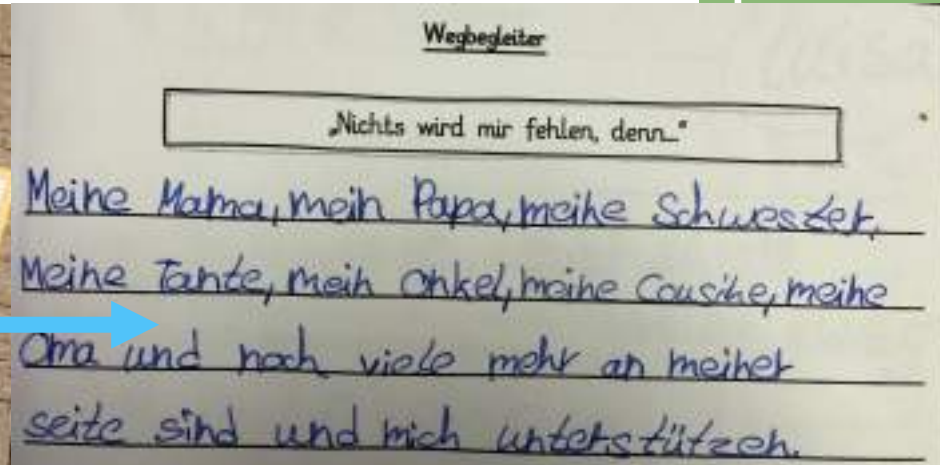 Wegbegleiter
„Nichts wird mir fehlen, denn..."
Meine Mama, mein Papa, meine Schwester,
Meine Tante, mein Onkel, meine Cousine, meine
Oma und noch viele mehr an meiner
seite sind und mich unterstützen.